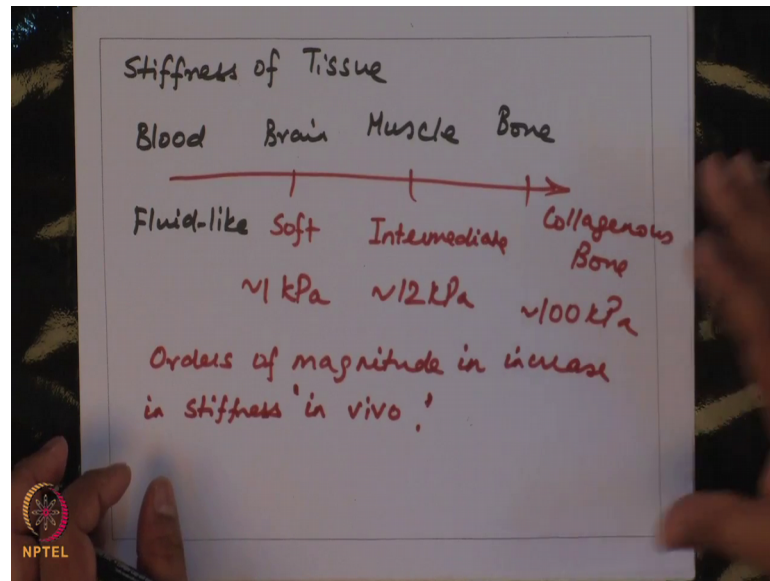 Stiffness of Tissue
Blood Brain Muscle Bone
Fluid-like Soft Intermediate Collagenous
Bone
~1 kPa ~12 kPa ~100 kPa
Orders of magnitude in increase
in stiffness 'in vivo'.
NPTEL